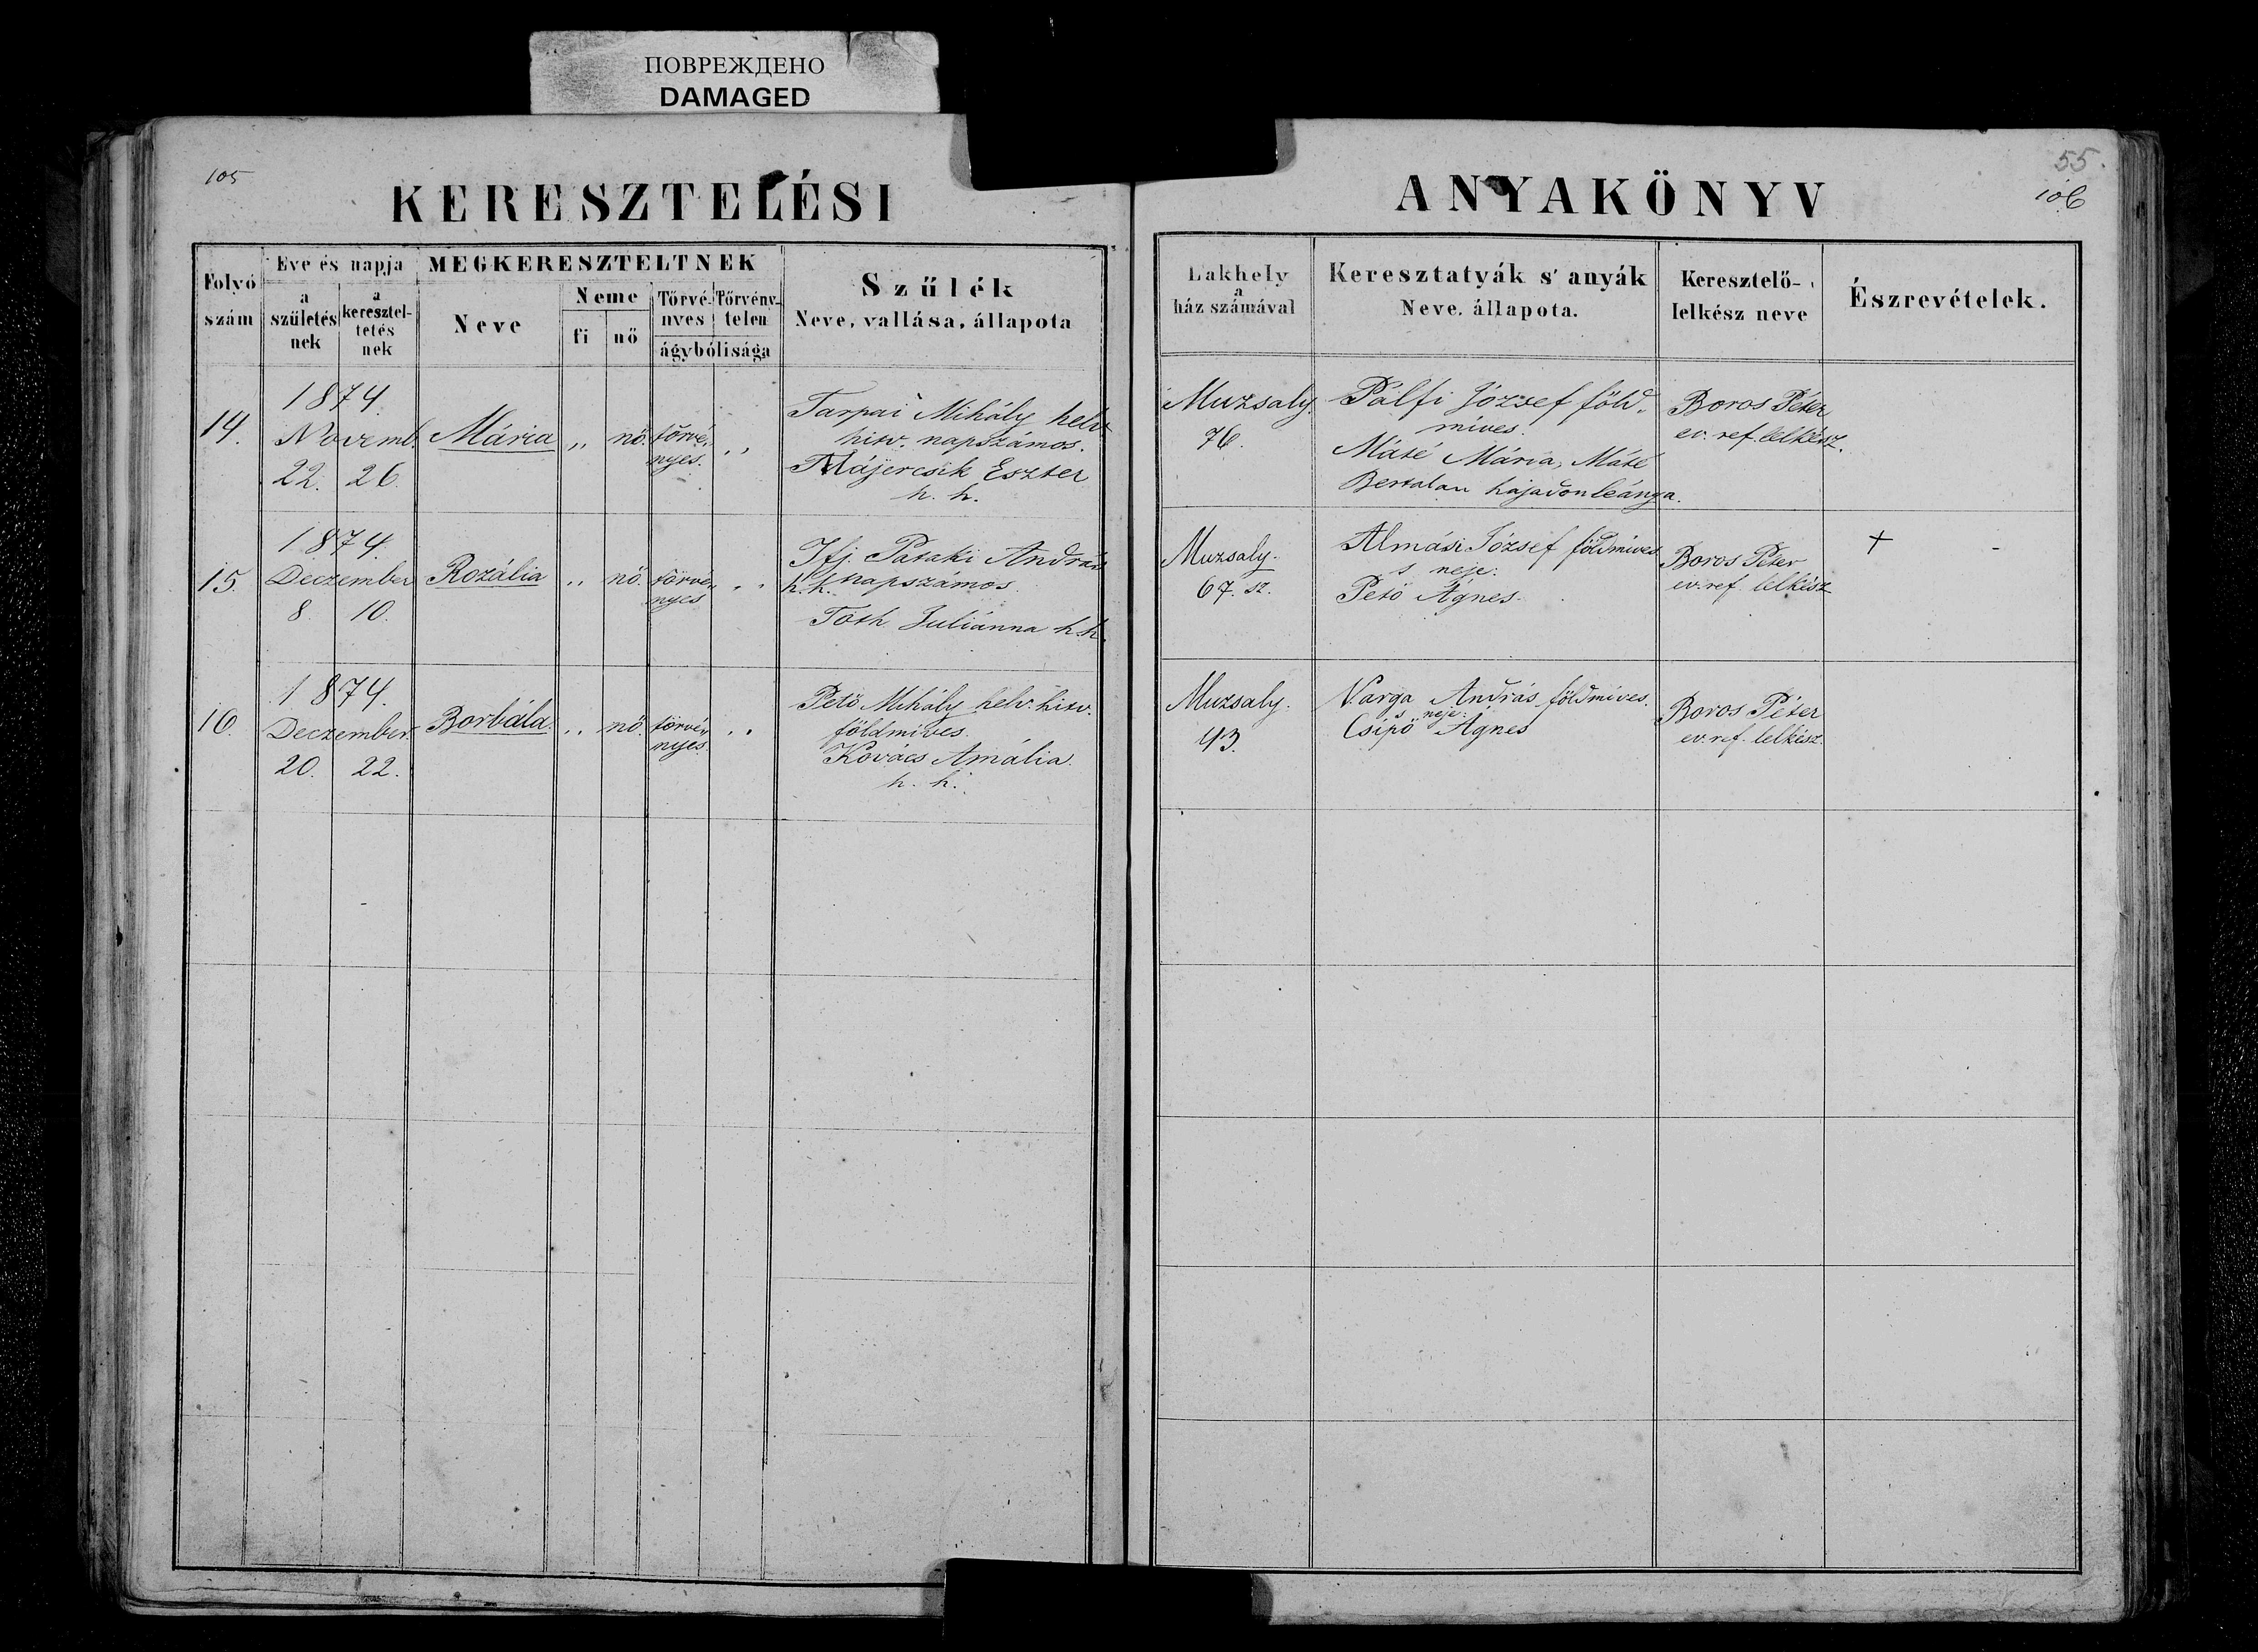 ПОВРЕЖДЕНО
DAMAGED
105
KERESZTELÉSI
Folyó szám
Eve és napja
a születés nek
a keresztel- tetés nek
MEGKERESZTELTNEK
Neve
Neme
fi
nő
Törvé- nyes
Törvény- telen
ágybólisága
Szűlék
Neve, vallása, állapota
14.
1874.
Novemb.
22. 26.
Mária
,,
nő.
törvé,
nyes.
,,
Tarpai Mihály helv
hitv. napszámos.
Májercsik Eszter
h. h.
15.
1874.
Deczember
8. 10.
Rozália
,,
nő.
törvé,
nyes
,,
Ifj. Pataki András
h. h. napszámos.
Tóth Juliánna h.h.
16.
1874.
Deczember.
20. 22.
Borbála.
,,
nő.
törvé,
nyes.
,,
Pető Mihály helv. hitv.
földmíves.
Kovács Amália.
h. h.
55.
106
ANYAKÖNYV
Lakhely
a
ház számával
Keresztatyák s' anyák
Neve, állapota.
Keresztelő-
lelkész neve
Észrevételek.
Muzsaly.
76.
Pálfi József föld,
míves.
Máté Mária, Máté
Bertalan hajadonleánya.
Boros Péter
ev. ref. lelkész.
Muzsaly.
67. sz.
Almási József földmíves
s neje:
Pető Ágnes.
Boros Péter
ev. ref. lelkész
+
Muzsaly.
43.
Varga András földmíves.
s neje:
Csipő Ágnes
Boros Péter
ev. ref. lelkész.